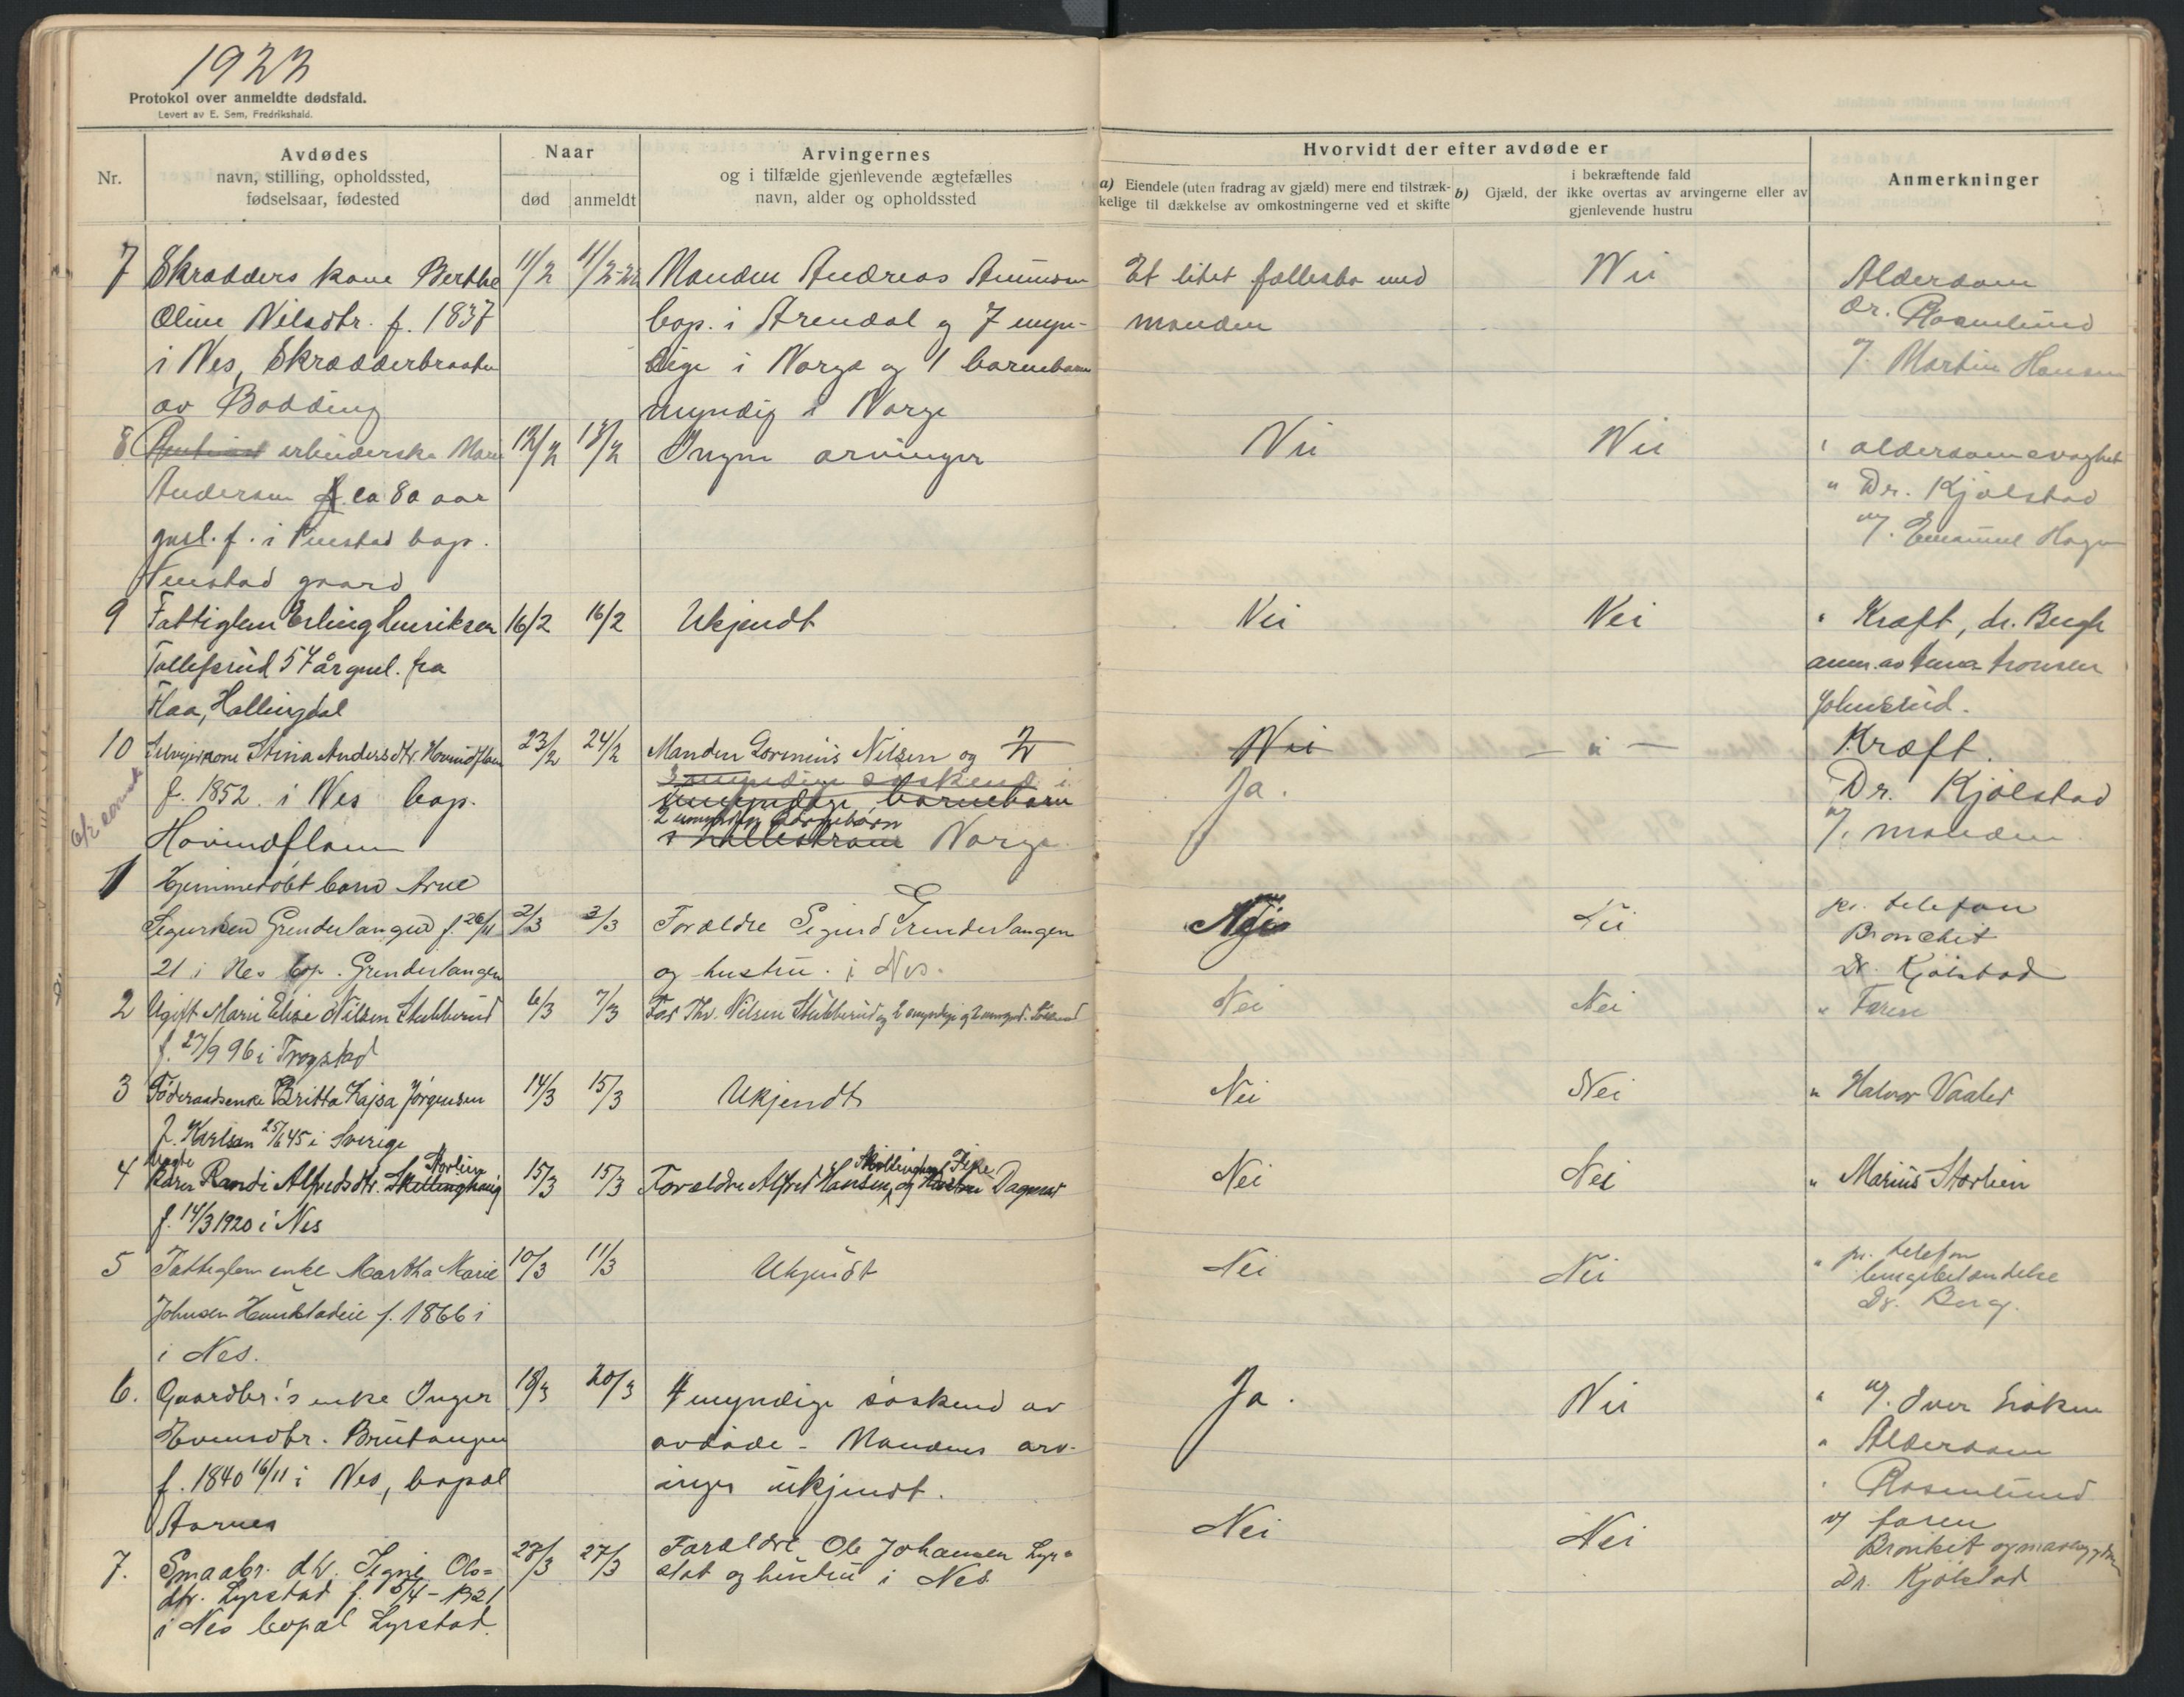 1922
Protokol over anmeldte dødsfald.
Levert av E. Sem, Fredrikshald.
Nr.
Avdødes
navn, stilling, opholdssted,
fødselsaar, fødested
Naar
død
anmeldt
Arvingernes
og i tilfælde gjenlevende ægtefælles
navn, alder og opholdssted
Hvorvidt der efter avdøde er
a) Eiendele (uten fradrag av gjæld) mere end tilstræk-
kelige til dækkelse av omkostningerne ved et skifte
i bekræftende fald
b) Gjæld, der ikke overtas av arvingerne eller av
gjenlevende hustru
Anmerkninger
7 Skrædders kone Berthe 11/2 11/2-22 Manden Andreas Et litet fællesbo med Nei Alderdom
Oline Nilsdtr. f. 1837 bop. i Arendal og 7 myn- manden Dr. Rosenlund
i Nes, Skrædderbraaten dige i Norge og 1 barnebarn v/. Martin Hansen
av Bodding myndig i Norge
8 arbeiderske Marie 12/2 13/2 Ingen arvinger Nei Nei " alderdomsvaghet
Andersen ca 80 aar " Dr. Kjølstad
gml. f. i bop. v/. Emanuel Hagen
gaard
9 Fattiglem Erling Henriksen 16/2 16/2 Ukjendt Nei Nei " Kræft, dr. Bergh
Tollefsrud 57 år gml. fra anm. av
Flaa, Hallingdal
10 Selveierkone Stina Andersdtr. Hovindflaen 23/2 24/2 Manden Lornius Nilsen og 2 Nei — " — Kræft.
f. 1852 i Nes bop. 3 myndige søskend i Ja. Dr. Kjølstad
umyndige barnebarn
Hovindflaen 2 umyndige barnebarn v/. manden
Norge
1 Hjemmedøbt barn Arne
Sigurdsen Grenderlangen f. 26/11 2/3 3/3 Forældre Sigurd Grenderlangen Nei Nei pr. telefon
Bronchit
21 i Nes bop. Grenderlangen og hustru i Nes. Dr. Kjølstad
2 Ugift Marie Elise Nilsen Stubberud 6/3 7/3 Far Thv. Nilsen Stubberud og 2 myndige og 2 umynd. søskend Nei Nei " Faren
f. 27/9 96 i Trøgstad
3 Føderaadsenke Britta Kajsa Jørgensen 14/3 15/3 Ukjendt Nei Nei " Halvor Vaaler
f. Karlsen 25/6 45 i Sverige
4 Randi Alfredsdtr. Skellinghaug Storlien 15/3 15/3 Forældre Alfred Hansen og Hustru Dagmar Nei Nei " Marius Storlien
f. 14/3 1920 i Nes
5 Fattiglem enke Martha Marie 10/3 11/3 Ukjendt Nei Nei " pr. telefon
lungebetændelse
Johnsen f. 1866 i Dr. Berg.
i Nes.
6. Gaardbr.'s enke Inger 18/3 20/3 4 myndige søskend av Ja. Nei " v/. Iver
Evensdtr. Brutangen avdøde - Mandens arv- " Alderdom
f. 1840 16/11 i Nes, bopæl inger ukjendt. " Rosenlund
Aarnes
7. Smaabr. dtr. Signe Ols- 28/3 27/3 Forældre Ole Johansen Lyr- Nei Nei v/ faren
Bronkit og
dtr. Lyrstad f. 5/4-1921 stad og hustru i Nes Dr. Kjølstad
i Nes bopæl Lyrstad.